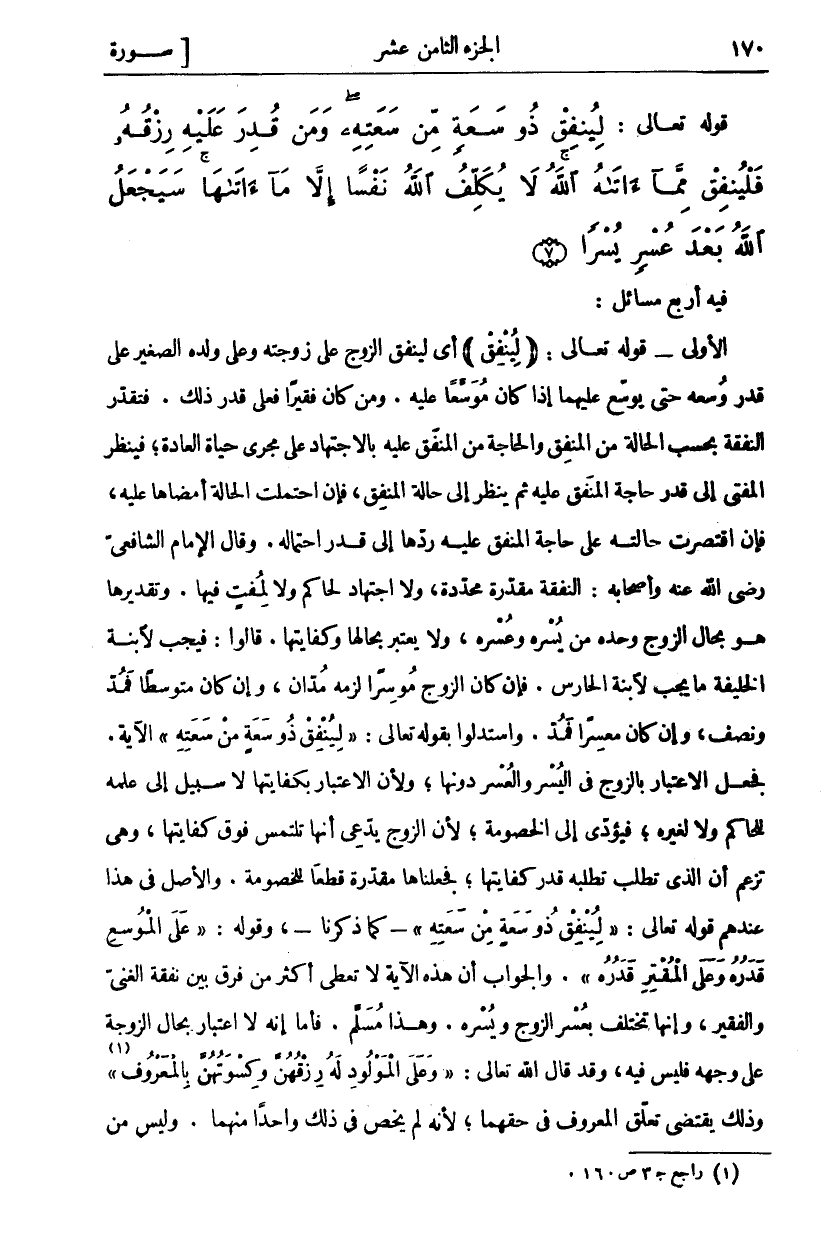 ١٧٠ الجزء الثامن عشر [ ســورة
قوله تعـالى : لِيُنفِقْ ذُو سَعَةٍ مِّن سَعَتِهِۦۖ وَمَن قُدِرَ عَلَيْهِ رِزْقُهُۥ
فَلْيُنفِقْ مِمَّآ ءَاتَىٰهُ ٱللَّهُۚ لَا يُكَلِّفُ ٱللَّهُ نَفْسًا إِلَّا مَآ ءَاتَىٰهَاۚ سَيَجْعَلُ
ٱللَّهُ بَعْدَ عُسْرٍ يُسْرًا ﴿٧﴾
فيه أربع مسائل :
الأولى ــ قوله تعـالى : ﴿ لِيُنْفِقْ ﴾ أى لينفق الزوج على زوجته وعلى ولده الصغير على
قدر وُسعه حتى يوسّع عليهما إذا كان مُوَسَّعًا عليه . ومن كان فقيرًا فعلى قدر ذلك . فتقدّر
النفقة بحسب الحالة من المنفِق والحاجة من المنفَق عليه بالاجتهاد على مجرى حياة العادة؛ فينظر
المفتى إلى قدر حاجة المنفَق عليه ثم ينظر إلى حالة المنفِق، فإن احتملت الحالة أمضاها عليه،
فإن اقتصرت حالتـه على حاجة المنفق عليـه ردّها إلى قـدر احتماله . وقال الإمام الشافعى
رضى الله عنه وأصحابه : النفقة مقدّرة محدّدة، ولا اجتهاد لحاكم ولا لمُفتٍ فيها . وتقديرها
هـو بحال الزوج وحده من يُسْره وعُسْره ، ولا يعتبر بحالها وكفايتها . قالوا : فيجب لأبنـة
الخليفة ما يجب لأبنة الحارس . فإن كان الزوج مُوسِرًا لزمه مُدّان ، وإن كان متوسطًا فمُدّ
ونصف، وإن كان معسرًا فمُدّ . واستدلوا بقوله تعالى : « لِيُنْفِقْ ذُو سَعَةٍ مِنْ سَعَتِهِ » الآية .
فجعـل الاعتبار بالزوج فى اليُسْر والعُسْر دونها ؛ ولأن الاعتبار بكفايتها لا سبيل إلى علمه
للحاكم ولا لغيره ؛ فيؤدّى إلى الخصومة ؛ لأن الزوج يدّعى أنها تلتمس فوق كفايتها ، وهى
تزعم أن الذى تطلب تطلبه قدر كفايتها ؛ فجعلناها مقدّرة قطعًا للخصومة . والأصل فى هذا
عندهم قوله تعالى : « لِيُنْفِقْ ذُو سَعَةٍ مِنْ سَعَتِهِ » ــ كما ذكرنا ــ ، وقوله : « عَلَى الْمُوسِعِ
قَدَرُهُ وَعَلَى الْمُقْتِرِ قَدَرُهُ » . والجواب أن هذه الآية لا تعطى أكثر من فرق بين نفقة الغنىّ
والفقير ، وإنها تختلف بعُسْر الزوج ويُسْره . وهـذا مُسَلَّم . فأما إنه لا اعتبار بحال الزوجة
على وجهه فليس فيه، وقد قال الله تعالى : « وَعَلَى الْمَوْلُودِ لَهُ رِزْقُهُنَّ وَكِسْوَتُهُنَّ بِالْمَعْرُوفِ » (١)
وذلك يقتضى تعلّق المعروف فى حقهما ؛ لأنه لم يخص فى ذلك واحدًا منهما . وليس من
(١) راجع جـ ٣ ص ١٦٠ .